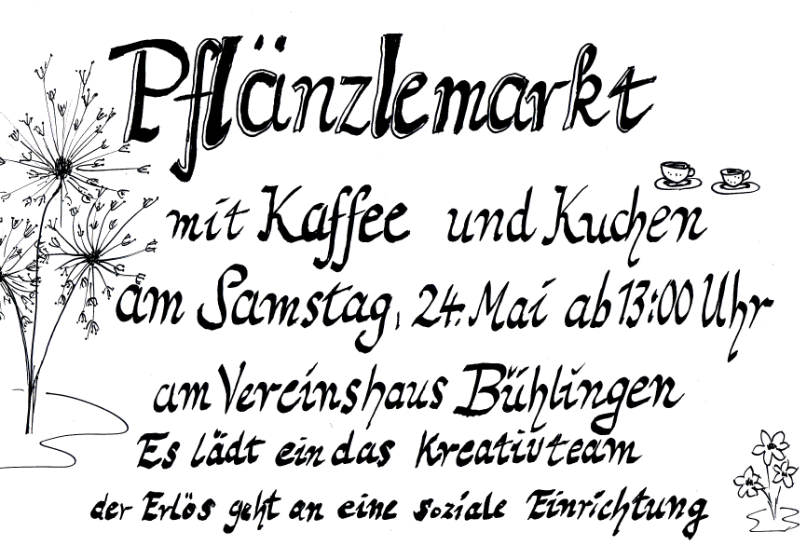 Pflänzlemarkt
mit Kaffee und Kuchen
am Samstag, 24. Mai ab 13:00 Uhr
am Vereinshaus Bühlingen
Es lädt ein das Kreativteam
der Erlös geht an eine soziale Einrichtung